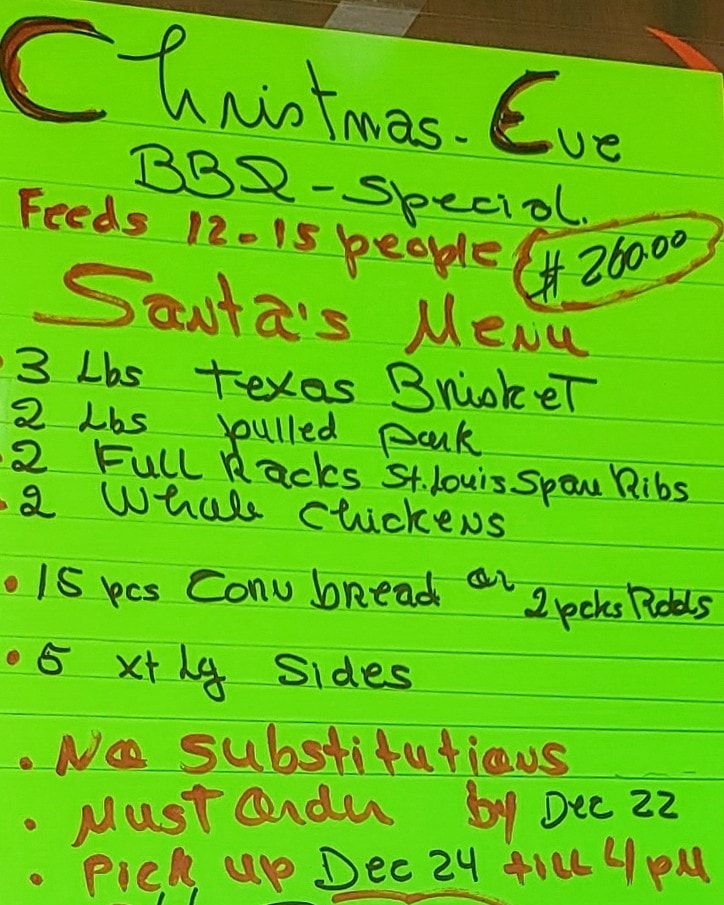 Christmas-Eve
BBQ-Special.
Feeds 12-15 people $260.00
Santa's Menu
3 Lbs Texas Brisket
2 Lbs pulled pork
2 Full Racks St. Louis Spare Ribs
2 Whole Chickens
• 15 pcs Corn bread or 2 pcks Rolls
• 5 xt Lg Sides
• No substitutions
• Must order by Dec 22
• Pick up Dec 24 till 4 pm